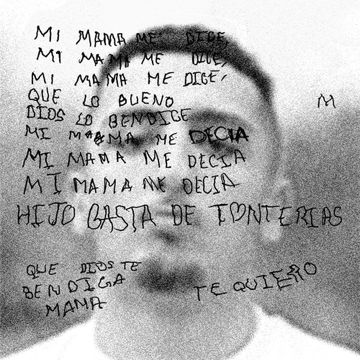 MI MAMA ME DICE,
MI MAMA ME DICE,
MI MAMA ME DICE,
QUE LO BUENO
M
DIOS LO BENDICE
MI MAMA ME DECIA
MI MAMA ME DECIA
MI MAMA ME DECIA
HIJO BASTA DE TONTERIAS
QUE DIOS TE
BENDIGA
MAMA
TE QUIERO